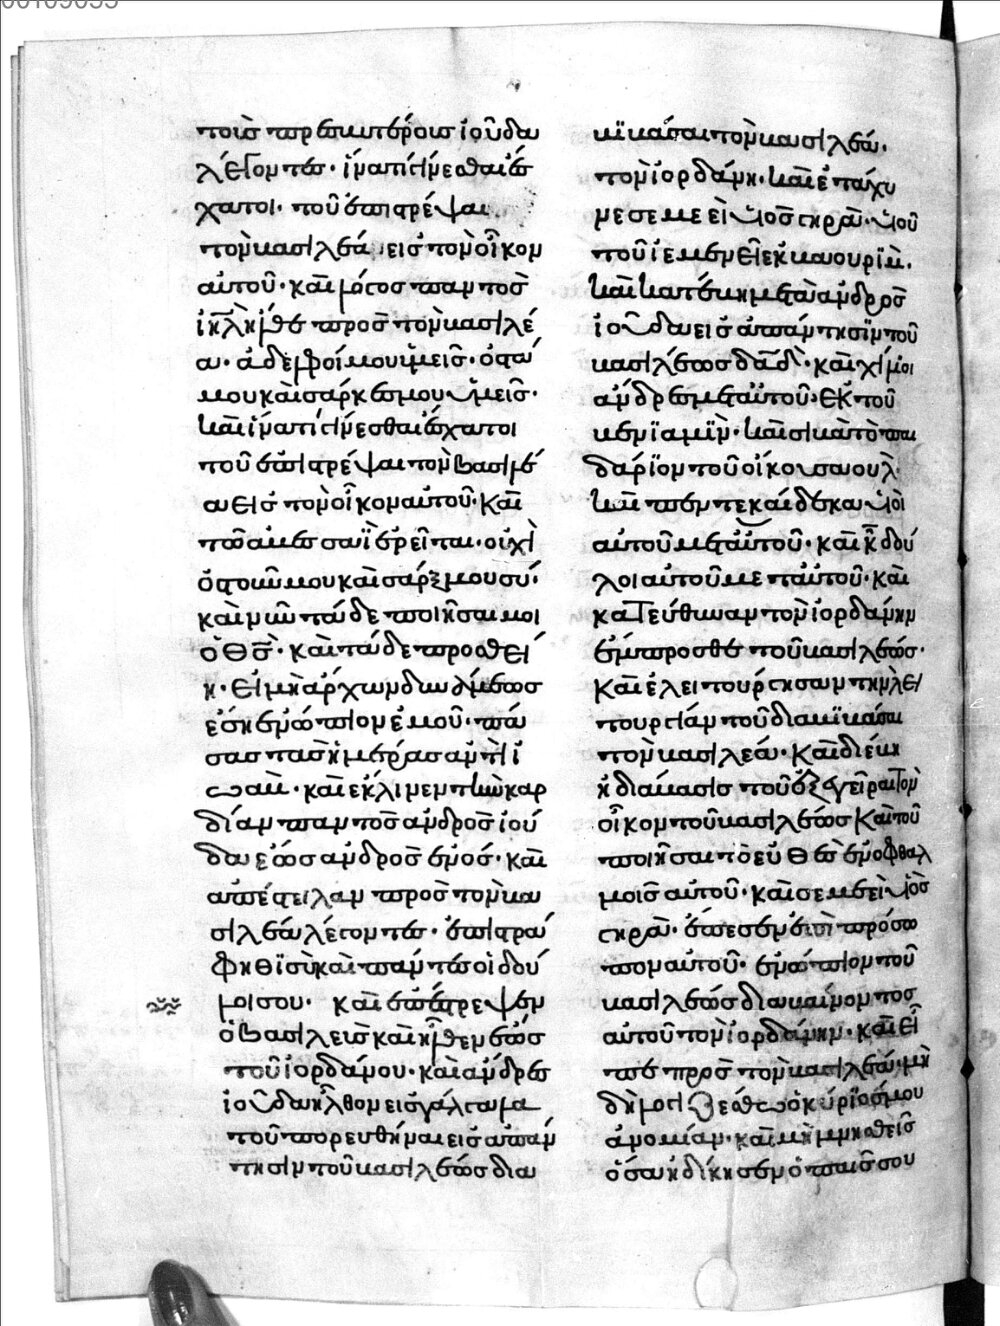 τοὺς πρεσβυτέρους ἰούδα
λέγοντες· ἱνατί γίνεσθαι ἔσ
χατοι· τοῦ ἐπιστρέψαι
τὸν βασιλέα εἰς τὸν οἶκον
αὐτοῦ· καὶ λόγος παντὸς
ἰηλ ἦλθε πρὸς τὸν βασιλέ
α· ἀδελφοί μου ὑμεῖς· ὀστᾶ
μου καὶ σάρκες μου ὑμεῖς·
καὶ ἱνατί γίνεσθαι ἔσχατοι
τοῦ ἐπιστρέψαι τὸν βασιλέ
α εἰς τὸν οἶκον αὐτοῦ· καὶ
τῶ ἀμεσσαῒ ἐρεῖται· οὐχὶ
ὀστοῦν μου καὶ σάρξ μου σύ·
καὶ νῦν τάδε ποιήσαι μοι
ὁ θς· καὶ τάδε προσθεί
η· εἰ μὴ ἄρχων δυνάμεως
ἔση ἐνώπιον ἐμοῦ· πά
σας τὰς ἡμέρας ἀντὶ ἰ
ωαβ· καὶ ἔκλινεν τὴν καρ
δίαν παντὸς ἀνδρὸς ἰού
δα ἕως ἀνδρὸς ἑνός· καὶ
ἀπέστειλαν πρὸς τὸν βα
σιλέα λέγοντες· ἐπιστρά
φηθι σὺ καὶ πάντες οἱ δοῦ
λοι σου· καὶ ἐπέστρεψεν
ὁ βασιλεὺς καὶ ἦλθεν ἕως
τοῦ ἰορδάνου· καὶ ἄνδρες
ἰούδα ἦλθον εἰς γάλγαλα
τοῦ πορευθῆναι εἰς ἀπάν
τησιν τοῦ βασιλέως δια
βιβάσαι τὸν βασιλέα·
τὸν ἰορδάνη· καὶ ἐτάχυ
νε σεμεεὶ υἱὸς γηρά· υἱοῦ
τοῦ ἰεμενεῖ ἐκ βαουρίμ·
καὶ κατέβη μετὰ ἀνδρὸς
ἰούδα εἰς ἀπάντησιν τοῦ
βασιλέως δαδ· καὶ χίλιοι
ἄνδρες μετ αὐτοῦ· ἐκ τοῦ
βενϊαμΐν· καὶ σιβὰ τὸ παι
δάριον τοῦ οἴκου σαουλ·
καὶ πεντεκαίδεκα υἱοὶ
αὐτοῦ μετ αὐτοῦ· καὶ κ δοῦ
λοι αὐτοῦ μετ αὐτοῦ· καὶ
κατεύθυναν τὸν ἰορδάνην
ἔμπροσθε τοῦ βασιλέως·
καὶ ἐλειτούργησαν τὴν λει
τουργίαν τοῦ διαβιβάσαι
τὸν βασιλέα· καὶ διέβη
ἡ διάβασις τοῦ ἐξεγεῖραι τὸν
οἶκον τοῦ βασιλέως καὶ τοῦ
ποιῆσαι τὸ εὐθὲς ἐν ὀφθαλ
μοῖς αὐτοῦ· καὶ σεμεεὶ υἱὸς
γηρά· ἔπεσεν ἐπὶ πρόσω
πον αὐτοῦ· ἐνώπιον τοῦ
βασιλέως διαβαίνοντος
αὐτοῦ τὸν ἰορδάνην· καὶ εἶ
πε πρὸς τὸν βασιλέα· μὴ
δὴ λογισθω ὁ κύριός μου
ἀνομίαν· καὶ μὴ μνησθεῖς
ὅσα ἠδίκησεν ὁ παῖς σου